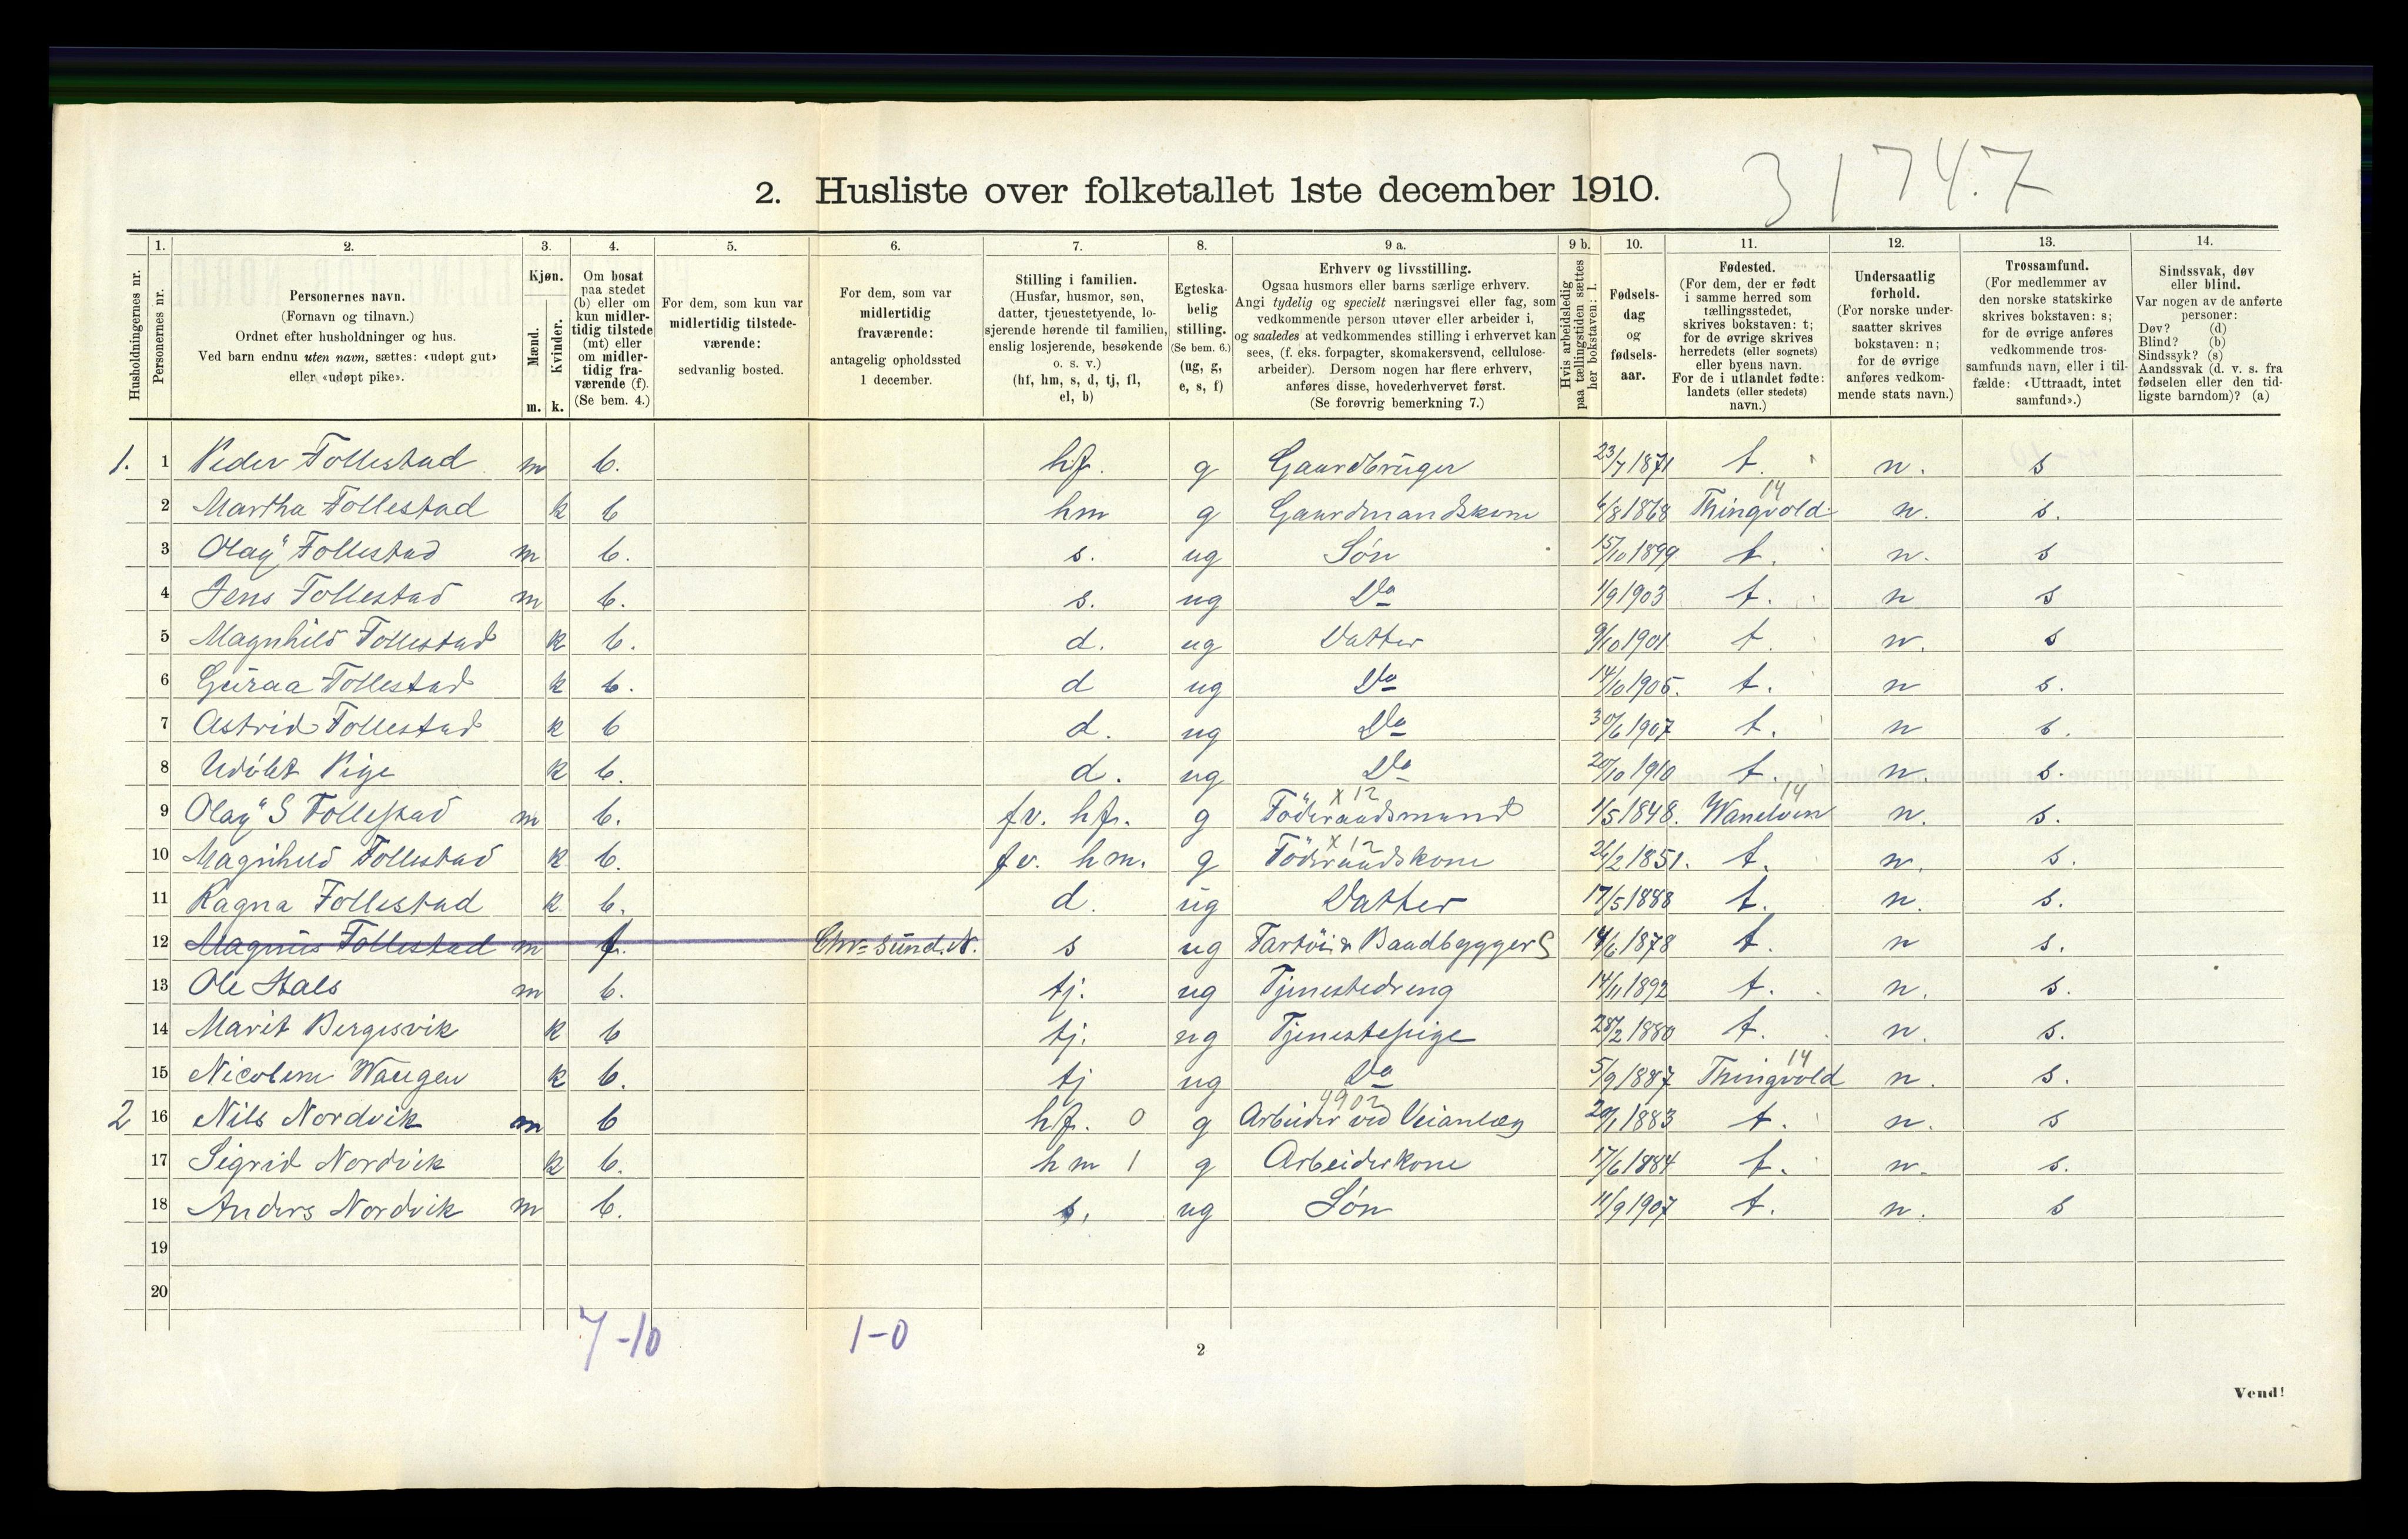 3 1 7 4. 7
2. Husliste over folketallet 1ste december 1910.
Husholdningernes nr.
1.
Personernes nr.
2.
Personernes navn.
(Fornavn og tilnavn.)
Ordnet efter husholdninger og hus.
Ved barn endnu uten navn, sættes: «udøpt gut»
eller «udøpt pike».
3.
Kjøn.
Mænd.
Kvinder.
m. k.
4.
Om bosat
paa stedet
(b) eller om
kun midler-
tidig tilstede
(mt) eller
om midler-
tidig fra-
værende (f).
(Se bem. 4.)
5.
For dem, som kun var
midlertidig tilstede-
værende:
sedvanlig bosted.
6.
For dem, som var
midlertidig
fraværende:
antagelig opholdssted
1 december.
7.
Stilling i familien.
(Husfar, husmor, søn,
datter, tjenestetyende, lo-
sjerende hørende til familien,
enslig losjerende, besøkende
o. s. v.)
(hf, hm, s, d, tj, fl,
el, b)
8.
Egteska-
belig
stilling.
(Se bem. 6.)
(ug, g,
e, s, f)
9 a.
Erhverv og livsstilling.
Ogsaa husmors eller barns særlige erhverv.
Angi tydelig og specielt næringsvei eller fag, som
vedkommende person utøver eller arbeider i,
og saaledes at vedkommendes stilling i erhvervet kan
sees, (f. eks. forpagter, skomakersvend, cellulose-
arbeider). Dersom nogen har flere erhverv,
anføres disse, hovederhvervet først.
(Se forøvrig bemerkning 7.)
9 b.
Hvis arbeidsledig
paa tællingstiden sættes
her bokstaven: l.
10.
Fødsels-
dag
og
fødsels-
aar.
11.
Fødested.
(For dem, der er født
i samme herred som
tællingsstedet,
skrives bokstaven: t;
for de øvrige skrives
herredets (eller sognets)
eller byens navn.
For de i utlandet fødte:
landets (eller stedets)
navn.)
12.
Undersaatlig
forhold.
(For norske under-
saatter skrives
bokstaven: n;
for de øvrige
anføres vedkom-
mende stats navn.)
13.
Trossamfund.
(For medlemmer av
den norske statskirke
skrives bokstaven: s;
for de øvrige anføres
vedkommende tros-
samfunds navn, eller i til-
fælde: «Uttraadt, intet
samfund».)
14.
Sindssvak, døv
eller blind.
Var nogen av de anførte
personer:
Døv? (d)
Blind? (b)
Sindssyk? (s)
Aandssvak (d. v. s. fra
fødselen eller den tid-
ligste barndom)? (a)
1. 1 Peder Follestad m b. hf. g Gaardbruger 23/7 1871 t. n. s
2 Martha Follestad k b hm g Gaardmandskone 6/8 1868 Thingvold 14 n. s.
3 Olaf Follestad m b. s. ug Søn 15/10 1899 t. n. s
4 Jens Follestad m b. s. ug Do 1/9 1903 t. n s
5 Magnhild Follestad k b. d. ug Datter 9/10 1901 t. n. s
6 Guraa Follestad k b. d ug Do 14/10 1905. t. n s.
7 Astrid Follestad k b d. ug Do 30/6 1907 t. n s.
8 Udöbt Pige k b. d. ug Do 20/10 1910 t. n. s.
9 Olaf S Follestad m b. fv. hf. g Föderaadsmand x 12 1/5 1848. Wanelven 14 n. s.
10 Magnhild Follestad k b. fv. hm. g Föderaadskone x 12 26/2 1851. t. n. s.
11 Ragna Follestad k b. d. ug Datter 17/5 1888 t. n. s.
12 Magnus Follestad m f. Chr=sund. N. s ug Fartöi & Baadbygger S 14/6 1878 t. n s.
13 Ole Hals m b. tj. ug Tjenestedreng 14/11 1892 t. n. s.
14 Marit Bergesvik k b tj. ug Tjenestepige 28/2 1880 t. n. s.
15 Nicoline Waagen k b. tj ug Do 5/9 1887 Thingvold 14 n. s.
2 16 Nils Nordvik m b hf. 0 g Arbeider ved Veianlæg 9902 20/1 1883 t. n. s
17 Sigrid Nordvik k b. hm 1 g Arbeiderkone 17/6 1884 t. n. s.
18 Anders Nordvik m b. s. ug Søn 11/9 1907 t. n. s
19
20
7-10 1-0
2
Vend!